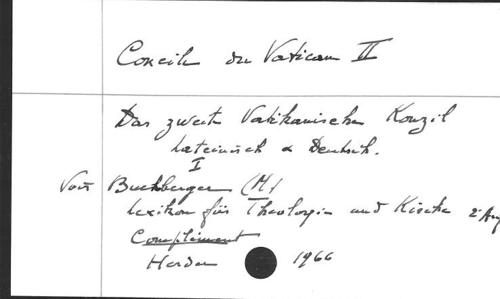 Concile du Vatican II
Das zweite Vatikanische Konzil
Lateinisch & Deutsch.
I
Voir Buchberger (M)
Lexikon für Theologie und Kirche 2 Aufl
Complément
Herder 1966